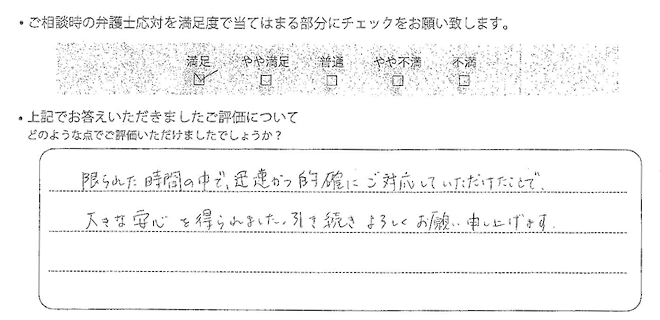 ・ご相談時の弁護士応対を満足度で当てはまる部分にチェックをお願い致します。
満足 やや満足 普通 やや不満 不満
☑ □ □ □ □
・上記でお答えいただきましたご評価について
どのような点でご評価いただけましたでしょうか？
限られた時間の中で、迅速かつ的確にご対応していただけたことで、
大きな安心を得られました。引き続きよろしくお願い申し上げます。